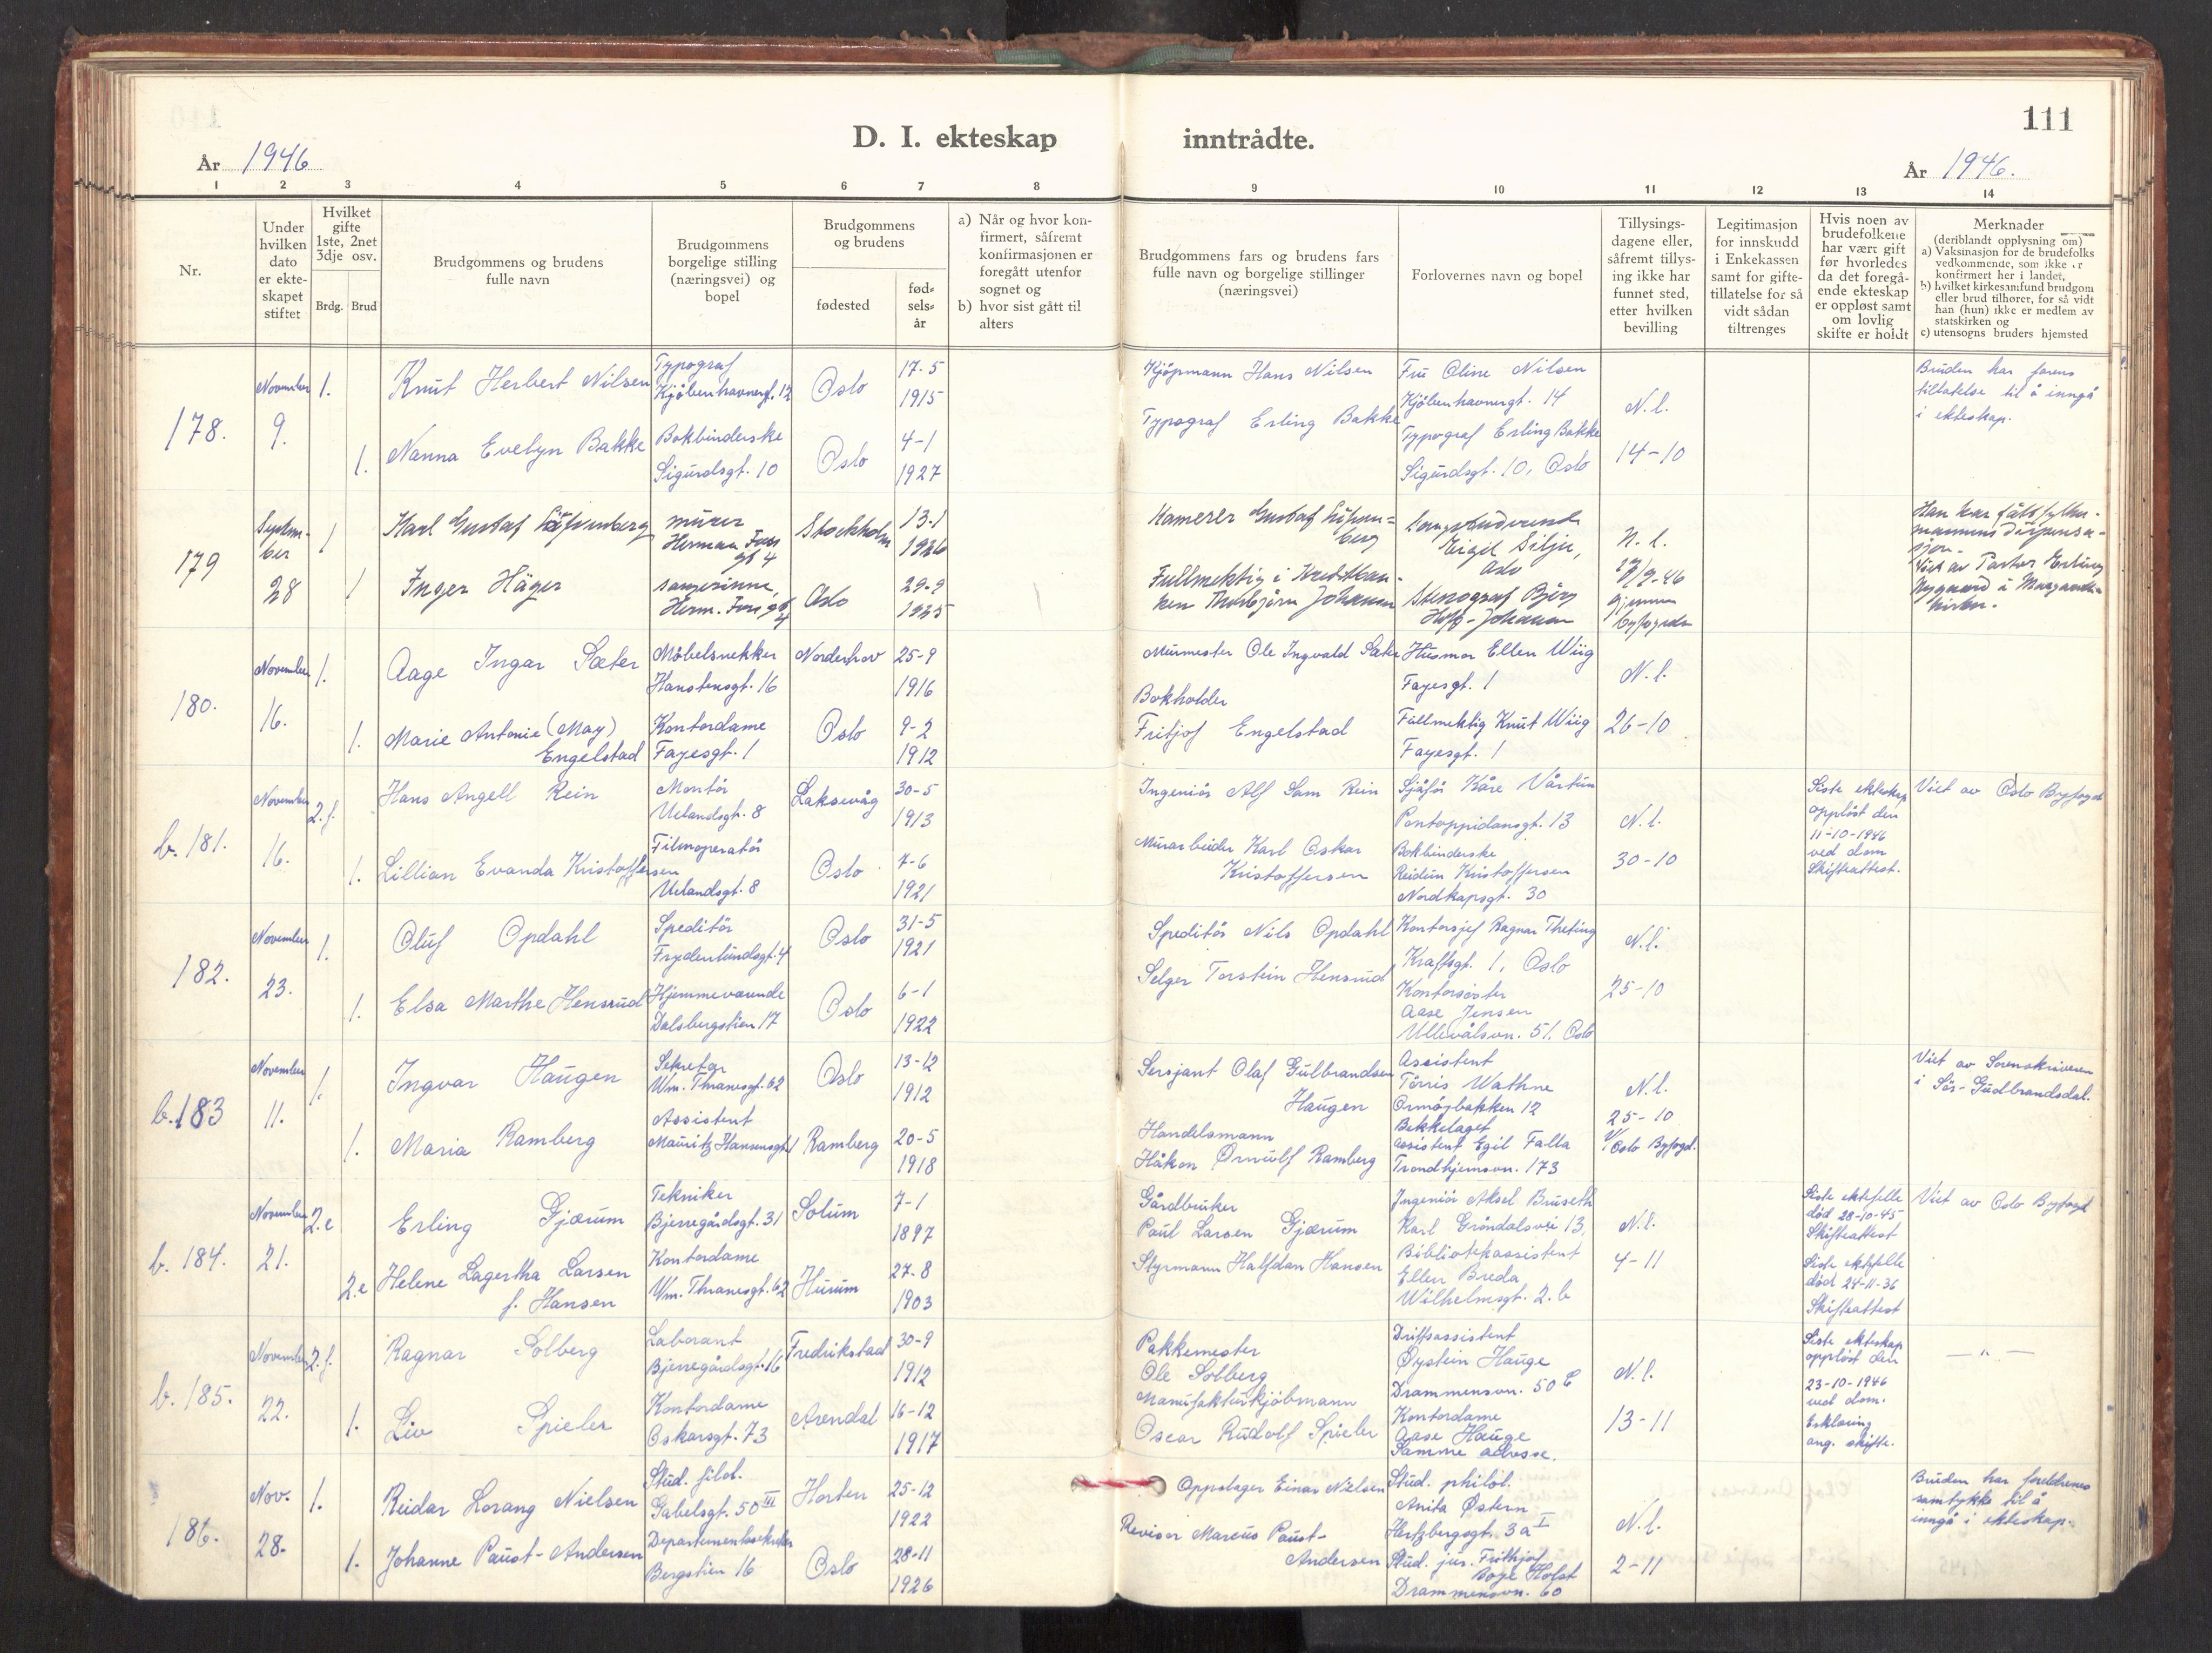 111
D. I. ekteskap inntrådte.
År 1946
År 1946.
1 2 3 4 5 6 7 8 9 10 11 12 13 14
Nr.
Under
hvilken
dato
er ekte-
skapet
stiftet
Hvilket
gifte
1ste, 2net
3dje osv.
Brdg. Brud
Brudgommens og brudens
fulle navn
Brudgommens
borgelige stilling
(næringsvei) og
bopel
Brudgommens
og brudens
fødested
fød-
sels-
år
a) Når og hvor kon-
firmert, såfremt
konfirmasjonen er
foregått utenfor
sognet og
b) hvor sist gått til
alters
Brudgommens fars og brudens fars
fulle navn og borgelige stillinger
(næringsvei)
Forlovernes navn og bopel
Tillysings-
dagene eller,
såfremt tillys-
ing ikke har
funnet sted,
etter hvilken
bevilling
Legitimasjon
for innskudd
i Enkekassen
samt for gifte-
tillatelse for så
vidt sådan
tiltrenges
Hvis noen av
brudefolkene
har vært gift
før hvorledes
da det foregå-
ende ekteskap
er oppløst samt
om lovlig
skifte er holdt
Merknader
(deriblandt opplysning om)
a) Vaksinasjon for de brudefolks
vedkommende, som ikke er
konfirmert her i landet,
b) hvilket kirkesamfund brudgom
eller brud tilhører, for så vidt
han (hun) ikke er medlem av
statskirken og
c) utensogns bruders hjemsted
178.
November
9.
1.
Knut Herbert Nilsen
Typograf
Kjöbenhavnergt. 12
Oslo
17-5
1915
1.
Nanna Evelyn Bakke
Bokbinderske
Sigurdsgt. 10
Oslo
4-1
1927
Kjöpmann Hans Nilsen
Typograf Erling Bakke
Fru Oline Nilsen
Kjöbenhavnergt. 14
Typograf Erling Bakke
Sigurdsgt. 10, Oslo
N.l.
14-10
Bruden har farens
tillatelse til å inngå
i ekteskap.
179
Septem-
ber
28
1
Karl Gustaf
murer
Herman Foss
gt 4
Stockholm
13-1
1926
1
Inger Häger
sangerinne,
Herm. Foss gt
4
Oslo
29-9
1925
Kamerer Gustaf
Fullmektig i Kreditban-
ken Thorbjörn Johansen
Eigil Silju,
Oslo
Stenograf Björg
N. l.
27/9-46
gjennom
byfogden
Han har fått fylkes-
mannens dispensa-
sjon.
Viet av Pastor Erling
Nygaard i Margareta-
kirken.
180.
November
16.
1.
Aage Ingar Sæter
Möbelsnekker
Hanstensgt. 16
Norderhov
25-9
1916
1.
Marie Antonie (May)
Engelstad
Kontordame
Fayesgt. 1
Oslo
9-2
1912
Murmester Ole Ingvald Sæter
Bokholder
Fritjof Engelstad
Husmor Ellen Wiig
Fayesgt. 1
Fullmektig Knut Wiig
Fayesgt. 1
N.l.
26-10
b. 181.
November
16.
2.f.
Hans Angell Rein
Montör
Uelandsgt. 8
Laksevåg
30-5
1913
1.
Lillian Evanda Kristoffersen
Filmoperatör
Uelandsgt. 8
Oslo
7-6
1921
Ingeniör Alf Sam Rein
Murarbeider Karl Oskar
Kristoffersen
Sjåför Kåre Vårtun
Pontoppidansgt. 13
Bokbinderske
Reidun Kristoffersen
Nordkapsgt. 30
N.l.
30-10
Siste ekteskap
opplöst den
11-10-1946
ved dom
Skifteattest.
Viet av Oslo Byfogd
182.
November
23.
1.
Oluf Opdahl
Speditör
Frydenlundsgt. 4
Oslo
31-5
1921
1.
Elsa Marthe Hensrud
Hjemmeværende
Dalsbergstien 17
Oslo
6-1
1922
Speditör Nils Opdahl
Selger Torstein Hensrud
Kontorsjef Ragnar Theting
Kraftsgt. 1, Oslo
Kontorsöster
Aase Jensen
Ullevålsvn. 51. Oslo
N.l.
25-10
b.183
November
11.
1.
Ingvar Haugen
Sekretær
Wm. Thranesgt. 62
Oslo
13-12
1912
1.
Maria Ramberg
Assistent
Mauritz Hansensgt. 1
Ramberg
20-5
1918
Sersjant Olaf Gulbrandsen
Haugen
Handelsmann
Håkon Ørnulf Ramberg
Assistent
Törris Wathne
Ormöybakken 12
Bekkelaget
assistent Egil Falla
Trondhjemsvn. 173
N.l.
25-10
v/ Oslo Byfogd.
Viet av Sorenskriveren
i Sör-Gudbrandsdal.
b. 184.
November
21.
2.e
Erling Gjærum
Tekniker
Bjerregårdsgt. 31
Solum
7-1
1897
2.e
Helene Lagertha Larsen
f. Hansen
Kontordame
Wm. Thranesgt. 62
Hurum
27-8
1903
Gårdbruker
Paul Larsen Gjærum
Styrmann Halfdan Hansen
Ingeniör Aksel Bruseth
Karl Gröndalsvei 13,
Bibliotekassistent
Ellen Breda
Wilhelmsgt. 2.b
N.l.
4-11
Siste ektefelle
död 28-10-45
Skifteattest
Siste ektefelle
död 24-11-36
Skifteattest
Viet av Oslo Byfogd
b. 185.
November
22.
2.f.
Ragnar Solberg
Laborant
Bjerregårdsgt. 16
Fredrikstad
30-9
1912
1.
Liv Spieler
Kontordame
Oskarsgt. 73
Arendal
16-12
1917
Pakkemester
Ole Solberg
Manufakturkjöbmann
Oscar Rudolf Spieler
Driftsassistent
Øystein Hauge
Drammensvn. 50 E
Kontordame
Aase Hauge
Samme adresse.
N.l.
13-11
Siste ekteskap
opplöst den
23-10-1946
ved dom.
Erklæring
ang. skifte.
— " —
186.
Nov.
28.
1.
Reidar Lorang Nielsen
Stud. filol.
Gabelsgt. 50 III
Horten
25-12
1922
1.
Johanne Paust-Andersen
Departementssekretær
Bergstien 16
Oslo
28-11
1926
Oppslager Einar Nielsen
Revisor Marcus Paust-
Andersen
Stud. philol.
Anita Østern
Hertzbergsgt. 3a I
Stud. jur. Frithjof
Boye Holst
Drammensvn. 60
N.l.
2-11
Bruden har foreldrenes
samtykke til å
inngå i ekteskap.